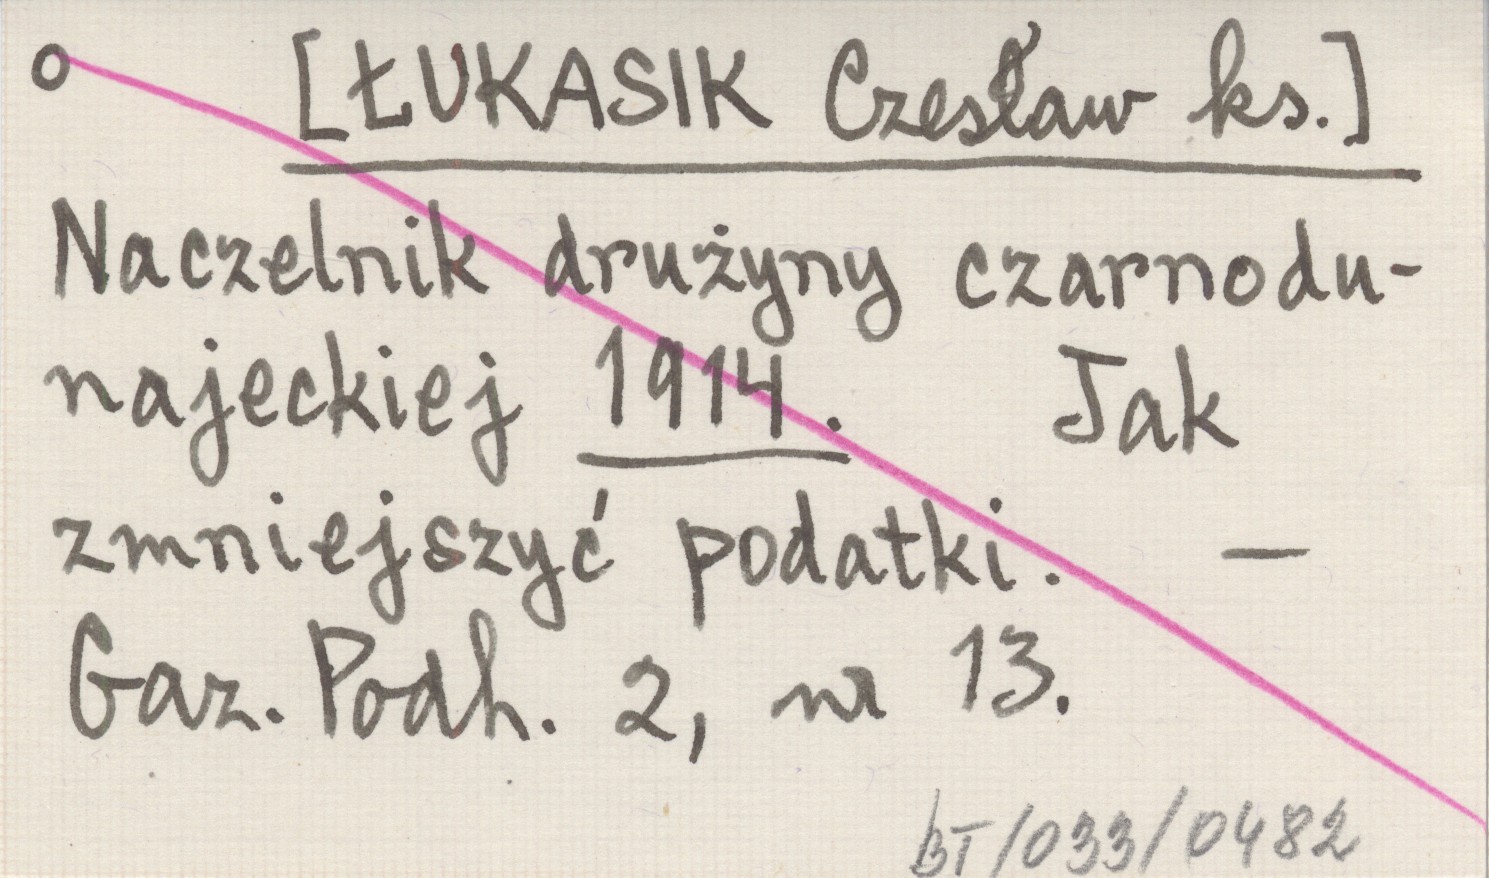 o [ŁUKASIK Czesław ks.]
Naczelnik drużyny czarnodu-
najeckiej 1914. Jak
zmniejszyć podatki. —
Gaz. Podh. 2, nr 13.
BT/033/0482